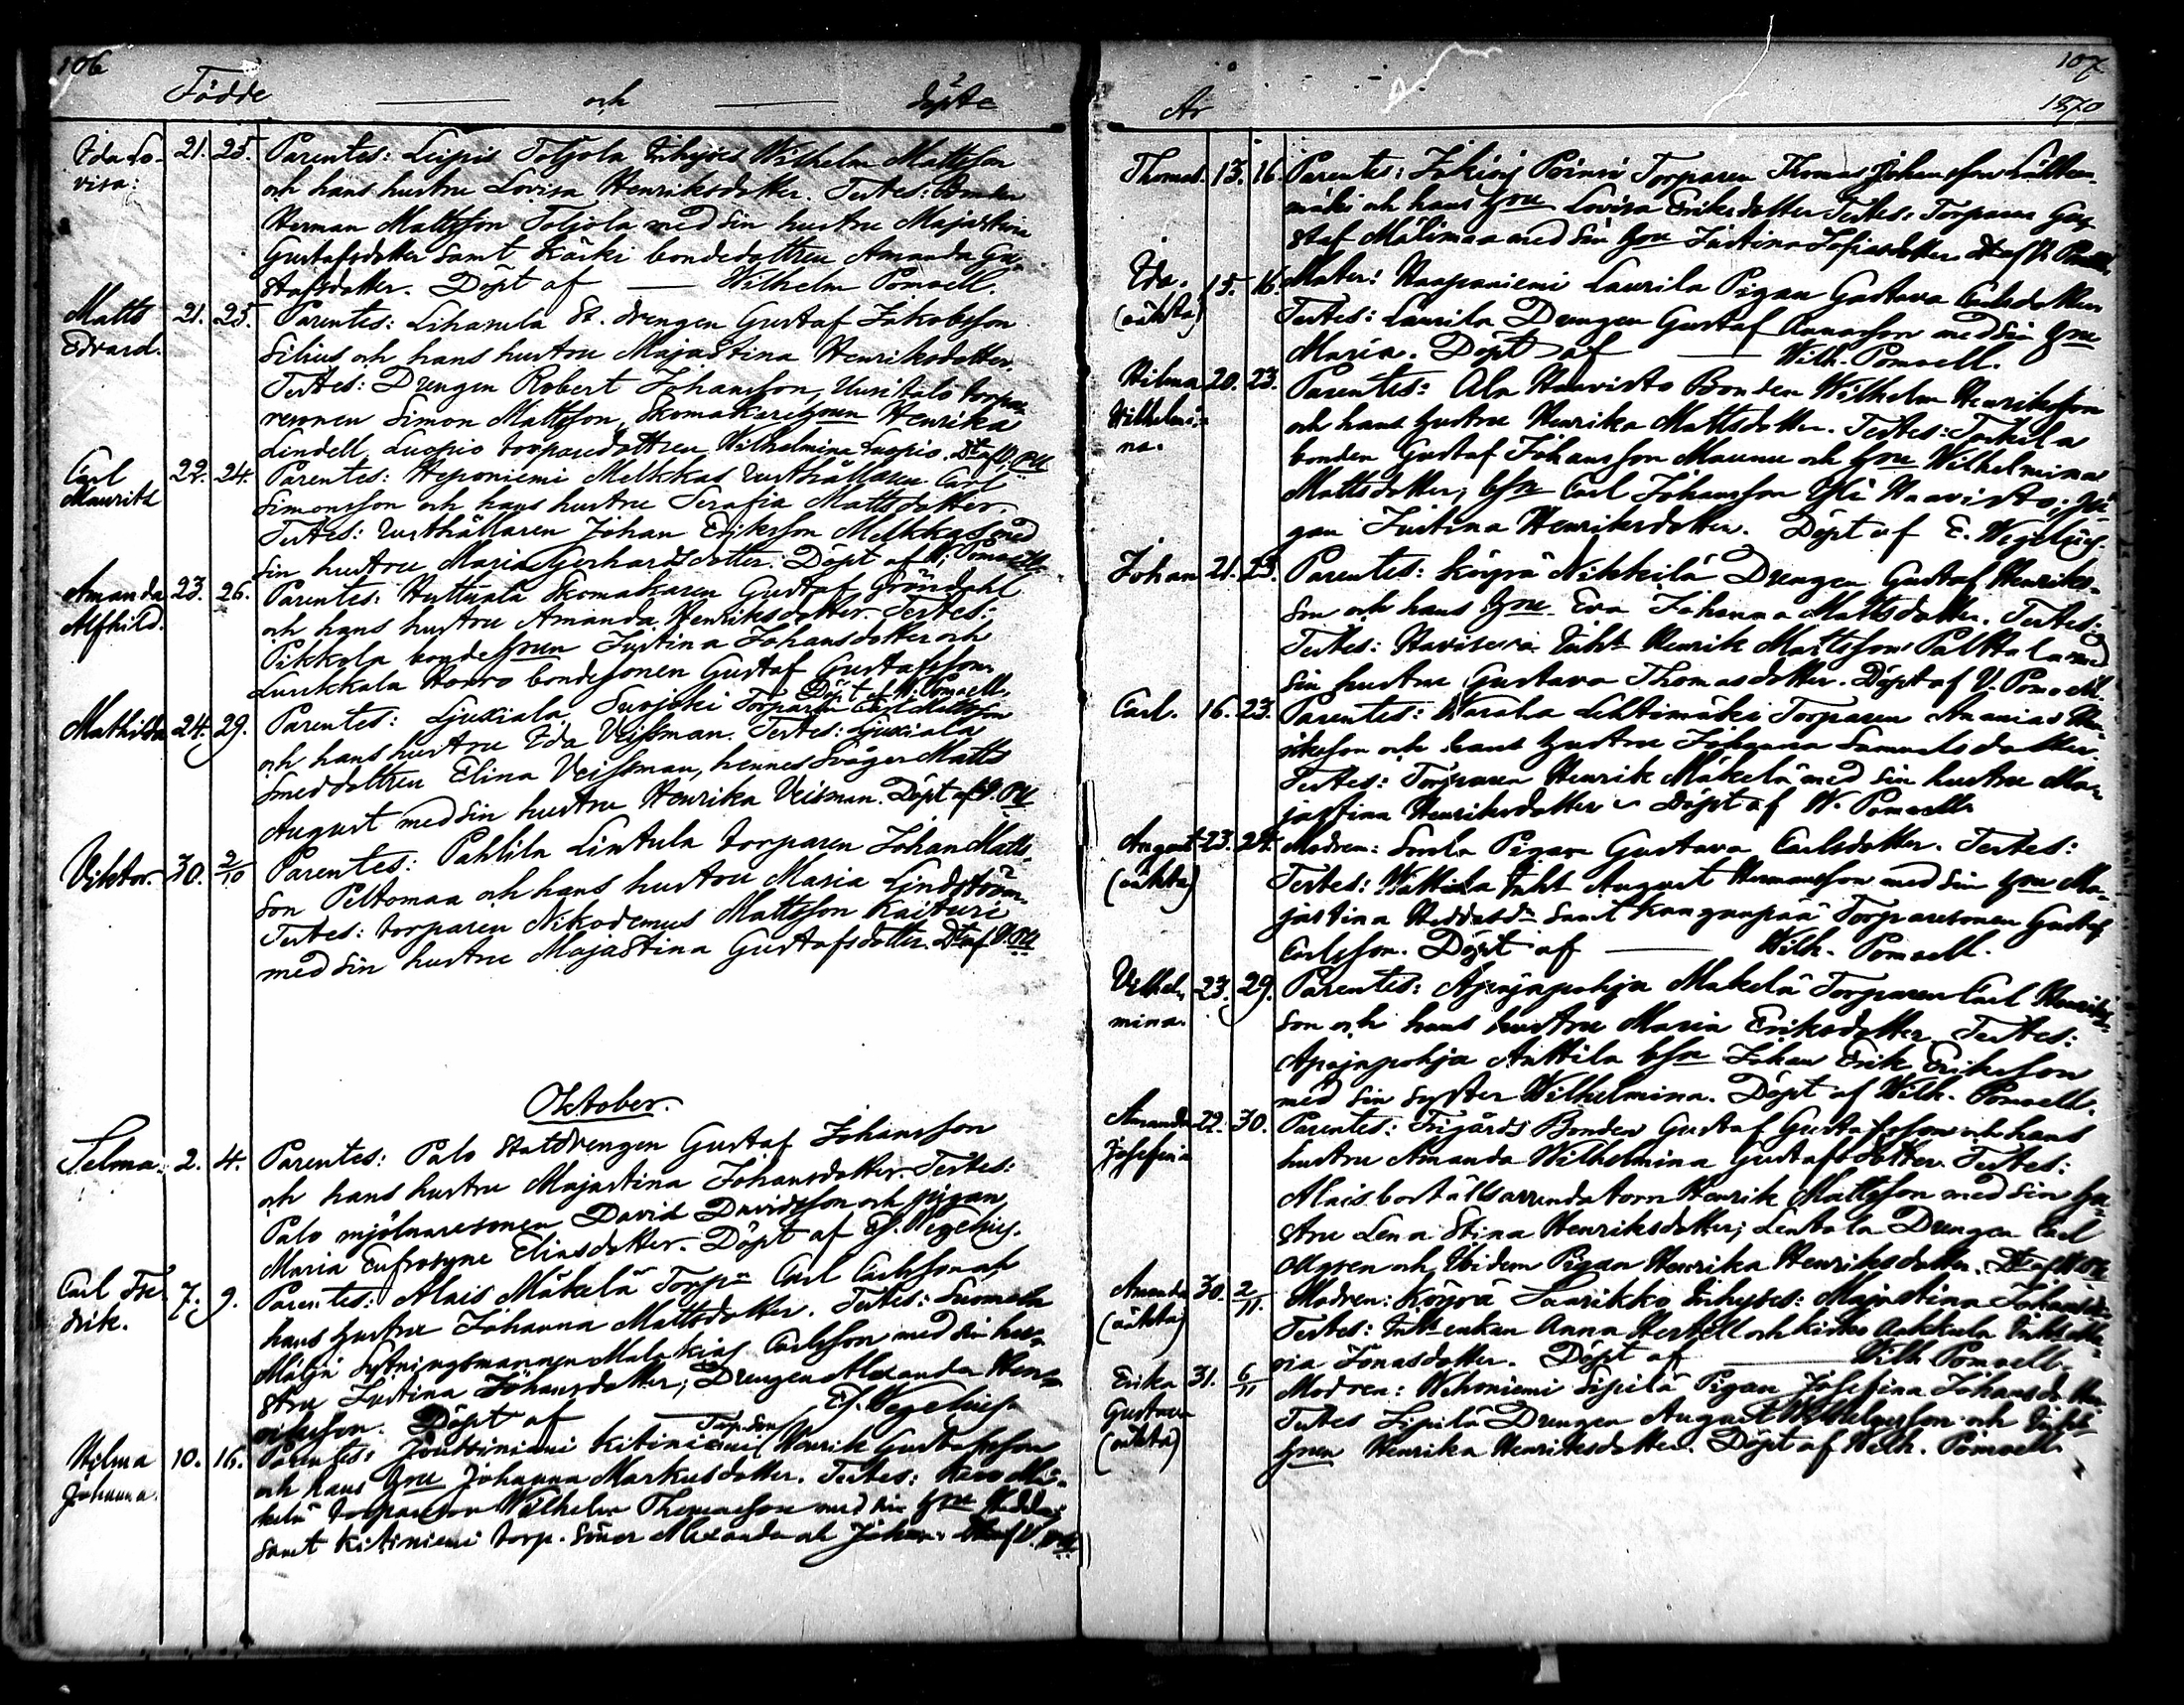 106
Födde och döpte
Ida Lo- 21. 25. Parentes: Leipis Toljola Inhyses Wilhelm Mattsson
visa: och hans hustru Lovisa Henriksdotter. Testes:
Herman Mattsson Toljola med sin hustru Majastina
Gustafsdotter samt Kärki bondedottren Amanda Gu-
stafsdotter. Döpt af — Wilhelm Pomoell.
Matts 21. 25. Parentes: Lihasula St. drengen Gustaf Jakobsson
Edvard. Silius och hans hustru Majastina Henriksdotter.
Testes: Drengen Robert Johansson, Uusitalo torpa-
resonen Simon Mattsson, Skomakarehrun Henrika
Lindell, Luopio torparedottren Wilhelmina Luopio. Dt af V. Pll
Carl 22. 24. Parentes: Heponiemi Melkkas rusthållaren Carl
Maurits Simonsson och hans hustru Serafia Mattsdotter.
Testes: rusthållaren Johan Eriksson Melkkas med
sin hustru Maria Gerhardsdotter. Döpt af W. Pomoell.
Amanda 23. 26. Parentes: Huttula Skomakaren Gustaf Gröndahl
Alfhild. och hans hustru Amanda Henriksdotter. Testes:
Pikkola bondehrun Justina Johansdotter och
Lusikkala Horro bondesonen Gustaf Gustafsson.
Döpt af W. Pomoell.
Mathilda 24. 29. Parentes: Ljuxiala Suojoki Torparen Carl Mattsson
och hans hustru Ida Veissman. Testes: Ljuxiala
Smeddottren Elina Veissman, hennes Svåger Matts
August med sin hustru Henrika Veisman. Döpt af V. Pll
Viktor. 30. 2/10 Parentes: Pahlila Lintula torparen Johan Matts-
son Peltomaa och hans hustru Maria Lindström.
Testes: torparen Nikodemus Mattsson Kaituri
med sin hustru Majastina Gustafsdotter. Dt af V. Pll
Oktober.
Selma. 2. 4. Parentes: Palo Statdrengen Gustaf Johansson
och hans hustru Majastina Johansdotter. Testes:
Palo mjölnaresonen David Davidsson och pigan
Maria Eufrosyne Eliasdotter. Döpt af Ef. Wegelius.
Carl Fre- 7. 9. Parentes: Alais Mäkelä Torpn Carl Carlsson och
drik. hans hustru Johanna Mattsdotter. Testes: Suomela
Mäljä Sytningsmannen Malakias Carlsson med sin hu-
stru Justina Johansdotter; Drengen Alexander Hen-
riksson. Döpt af — Ef. Wegelius.
Hilma 10. 16. Parentes: Jouttiniemi Kitiniemi Torp.son Henrik Gustafsson
Johanna. och hans hru Johanna Markusdotter. Testes: Mä-
kelä torparen Wilhelm Thomasson med sin hru Hedda;
samt Kitiniemi torp. söner Alexander och Johan. Dt af V. Pll
107.
År 1870
Thomas. 13. 16. Parentes: Torparen Thomas Johansson
mäki och hans hru Lovisa Eriksdotter Testes: Torparen Gu-
staf Mälimaa med sin hru Justina Dt af V. Pomoell.
Ida. 15. 16. Mater: Haapaniemi Laurila Pigan Gustava Carlsdotter
(oäkta) Testes: Laurila Drengen Gustaf med sin hru
Maria. Döpt af — Wilh. Pomoell.
Hilma 20. 23. Parentes: Ala Haavisto Bonden Wilhelm Henriksson
Wilhelmi- och hans hustru Henrika Mattsdotter. Testes: Tortila
na. bonden Gustaf Johansson Maunu och hru Wilhelmina
Mattsdotter; bsn Carl Johansson Yli Haavisto; pi-
gan Justina Henriksdotter. Döpt af E. Wegelius.
Johan 21. 23. Parentes: Köyrä Nikkilä Drengen Gustaf Henriks-
son och hans hru Eva Johanna Mattsdotter. Testes:
Testes: Haviseva Inht Henrik Mattsson Palttala med
sin hustru Gustava Thomasdotter. Döpt af V. Pomoell.
Carl. 16. 23. Parentes: Waraha Lehtimäki Torparen Ananias Hen-
riksson och hans hustru Johanna Samuelsdotter.
Testes: Torparen Henrik Mäkelä med sin hustru Ma-
jastina Henriksdotter Döpt af W. Pomoell
August 23. 24. Modren: Pigan Gustava Carlsdotter. Testes:
(oäkta) Testes: Wättilä Inht August Hermansson med sin hru Ma-
jastina samt Kangaspää Torparesonen Gustaf
Carlsson. Döpt af — Wilh. Pomoell.
Vilhel- 23. 29. Parentes: Apajapohja Mäkelä Torparen Carl Henriks-
mina. son och hans hustru Maria Eriksdotter. Testes:
Apajapohja Anttila bsn Johan Erik Eriksson
med sin syster Wilhelmina. Döpt af Wilh. Pomoell.
Amanda 29. 30. Parentes: Frigårds Bonden Gustaf Gustafsson och hans
Josefina hustru Amanda Wilhelmina Gustafsdotter. Testes:
Alais boställsarrendatorn Henrik Mattsson med sin hu-
stru Lena Stina Henriksdotter; Lentola Drengen Carl
och ibidem Pigan Henrika Henriksdotter.
Amanda 30. 2/11. Modren: Köyrä Saarikko Inhyses: Majastina Johansdr.
(oäkta) Testes: Inht enkan Anna Hertell och Kisko Aakkula Inht Ma-
ria Jonasdotter. Döpt af — Wilh Pomoell.
Erika 31. 6/11 Modren: Wehoniemi Sipilä Pigan Josefina Johansdr.
Gustava Testes Sipilä Drengen August Wilhelmsson och Inht
(oäkta) hrun Henrika Henriksdotter. Döpt af Wilh. Pomoell.